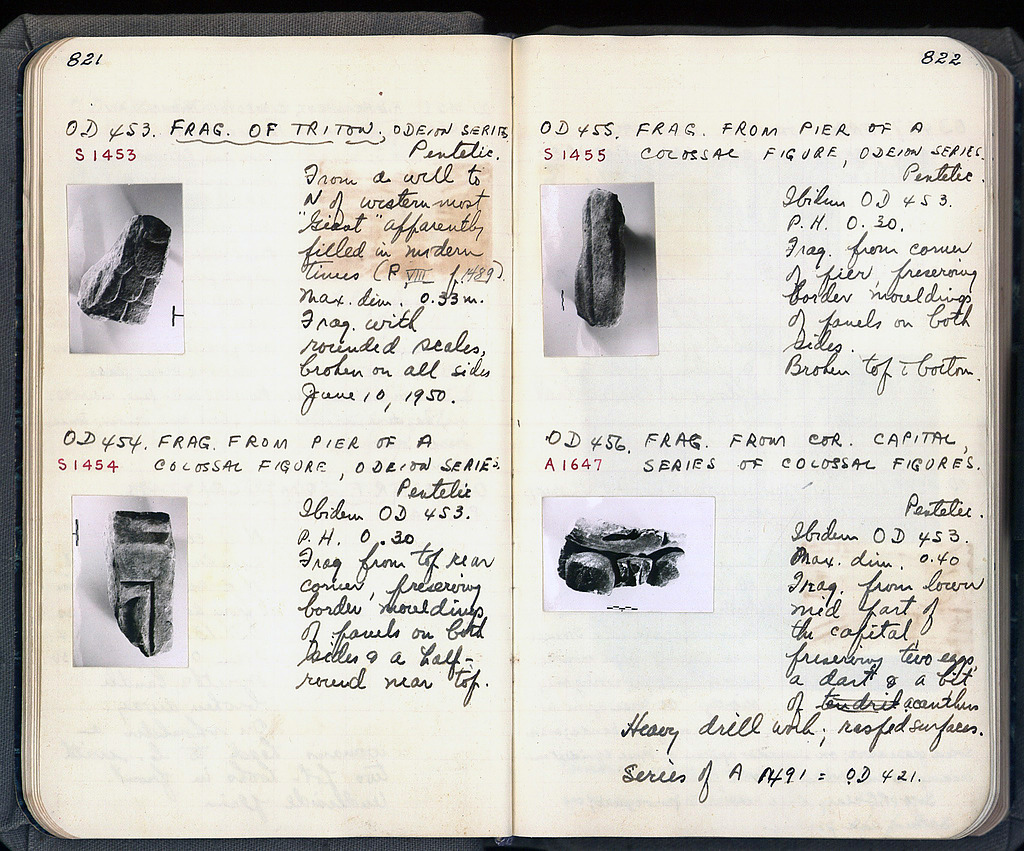 821
OD 453. FRAG. OF TRITON, ODEION SERIES
S 1453
Pentelic.
From a well to
N of westernmost
"Giant" apparently
filled in modern
times (P. VIII p. 1489).
Max. dim. 0.33 m.
Frag. with
rounded scales,
broken on all sides
June 10, 1950.
OD 454. FRAG. FROM PIER OF A
S 1454 COLOSSAL FIGURE, ODEION SERIES.
Pentelic
Ibidem OD 453.
P. H. 0.30
Frag from top rear
corner, preserving
border mouldings
of panels on both
sides & a half-
round near top.
822
OD 455. FRAG. FROM PIER OF A
S 1455 COLOSSAL FIGURE, ODEION SERIES.
Pentelic.
Ibidem OD 453.
P. H. 0.30.
Frag. from corner
of pier, preserving
border mouldings
of panels on both
sides.
Broken top & bottom.
OD 456. FRAG. FROM COR. CAPITAL,
A 1647 SERIES OF COLOSSAL FIGURES.
Pentelic.
Ibidem OD 453.
Max. dim. 0.40
Frag. from lower
mid part of
the capital,
preserving two eggs,
a dart & a bit
of tendril acanthus
Heavy drill work; rasped surfaces.
Series of A 1491 = OD 421.